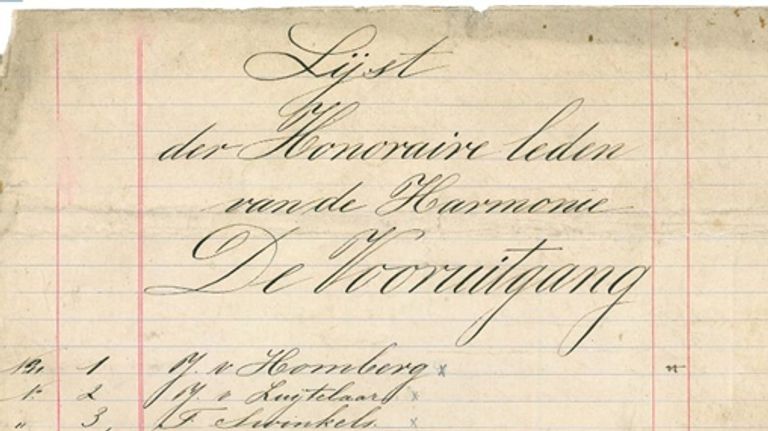 Lijst
der Honoraire leden
van de Harmonie
De Vooruitgang
1 J. v Homberg x
2 J. v Luijtelaar x
" 3, F. Swinkels x